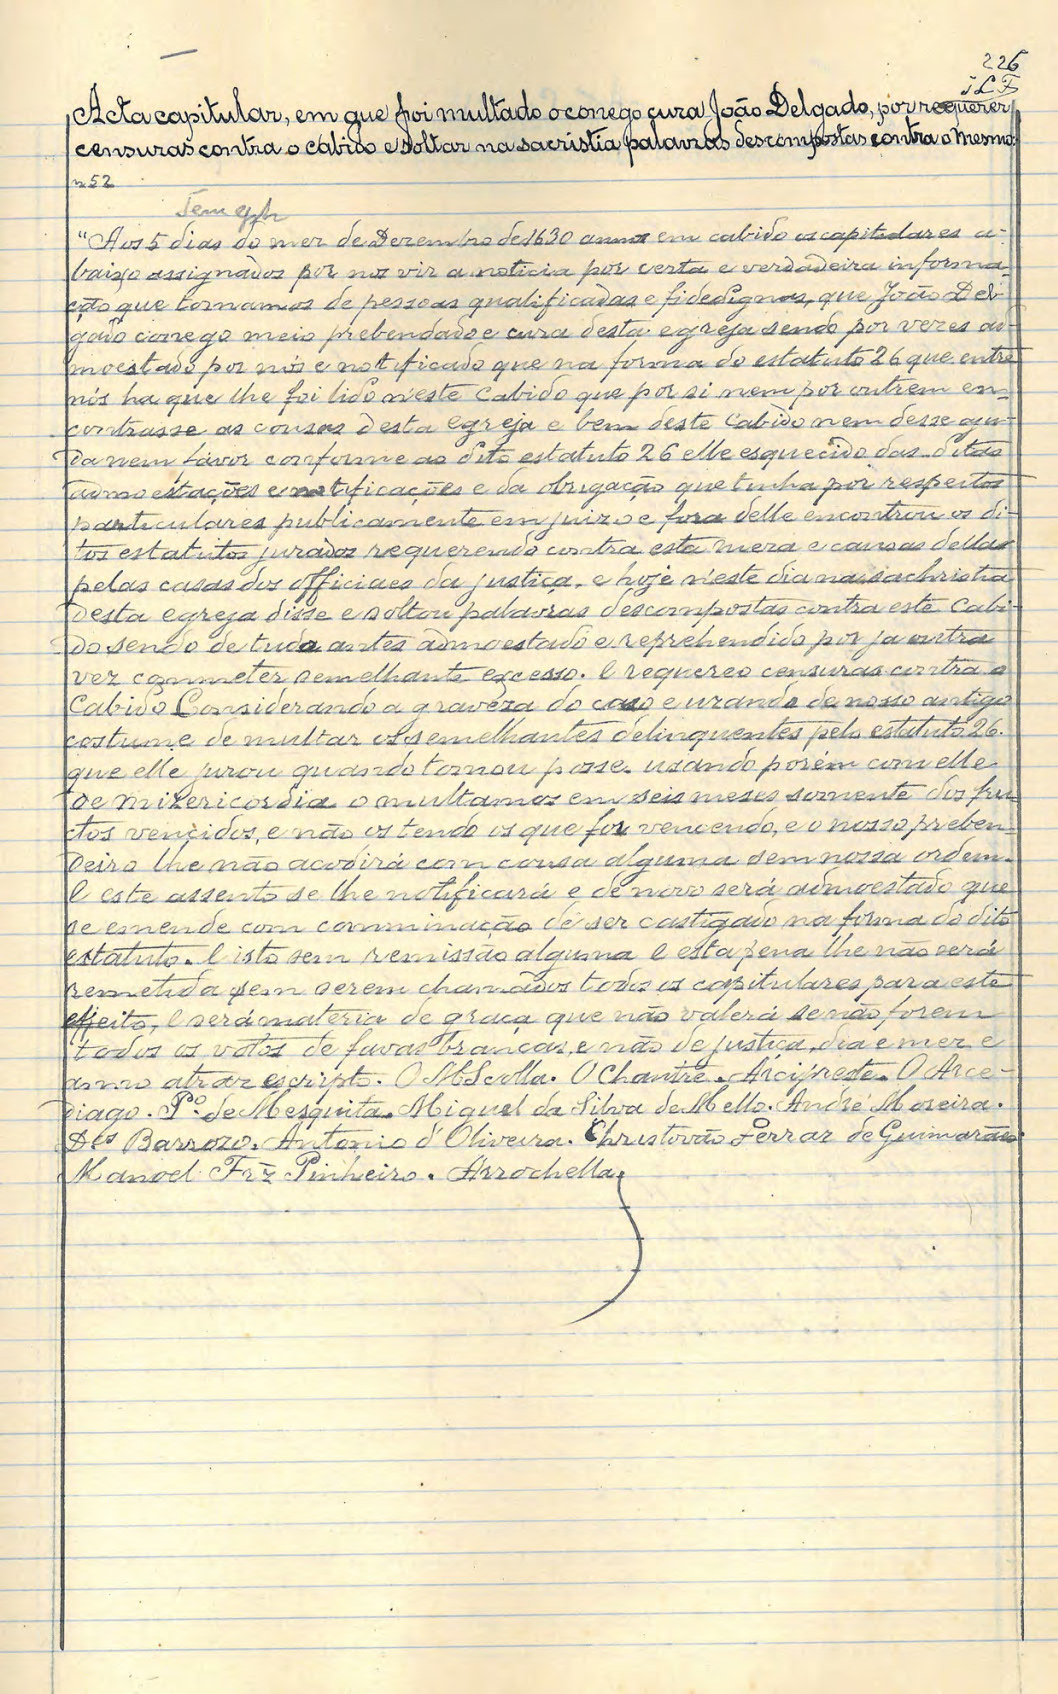 226
Acta capitular, em que foi multado o conego cura João Delgado, por requerer
censuras contra o cabido e soltar na sacristia palavras descompostas contra o mesmo.
nº 52
"Aos 5 dias do mez de Dezembro de 1630 annos em cabido os capitulares a-
baixo assignados por nos vir a noticia por certa e verdadeira informa-
ção que tomamos de pessoas qualificadas e fidedignas, que João Del-
gado conego meio prebendado e cura desta egreja sendo por vezes ad-
moestado por nós e notificado que na forma do estatuto 26 que entre
nós ha que lhe foi lido n'este Cabido que por si nem por outrem en-
contrasse as cousas desta egreja e bem deste Cabido nem desse aju-
da nem favor conforme ao dito estatuto 26 elle esquecido das ditas
admoestações e notificações e da obrigação que tinha por respeitos
particulares publicamente em juizo e fora delle encontrou os di-
tos estatutos jurados requerendo contra esta meza e causas dellas
pelas casas dos officiaes da justiça, e hoje n'este dia na sachristia
desta egreja disse e soltou palavras descompostas contra este Cabi-
do sendo de tudo antes admoestado e reprehendido por ja outra
vez commeter semelhante excesso. E requereo censuras contra o
Cabido Considerando a graveza do caso e uzando de nosso antigo
costume de multar os semelhantes delinquentes pelo estatuto 26.
que elle jurou quando tomou posse. usando porém com elle
de mizericordia o multamos em seis meses somente dos fru-
ctos vencidos, e não os tendo os que for vencendo, e o nosso preben-
deiro lhe não acodirá com cousa alguma sem nossa ordem.
E este assento se lhe notificará e de novo será admoestado que
se emende com comminação de ser castigado na forma do dito
estatuto. E isto sem remissão alguma e esta pena lhe não será
remetida sem serem chamados todos os capitulares para este
effeito, e será materia de graça que não valerá se não forem
todos os votos de favas brancas, e não de justiça, dia e mez e
anno atraz escripto. O MScolla. O Chantre. Arcipreste. O Arce-
diago. Pº. de Mesquita. Miguel da Silva de Mello. André Moreira.
Dºs Barrozo. Antonio d'Oliveira. Christovão Ferraz de Guimarães.
Manoel Frz Pinheiro. Arrochella.